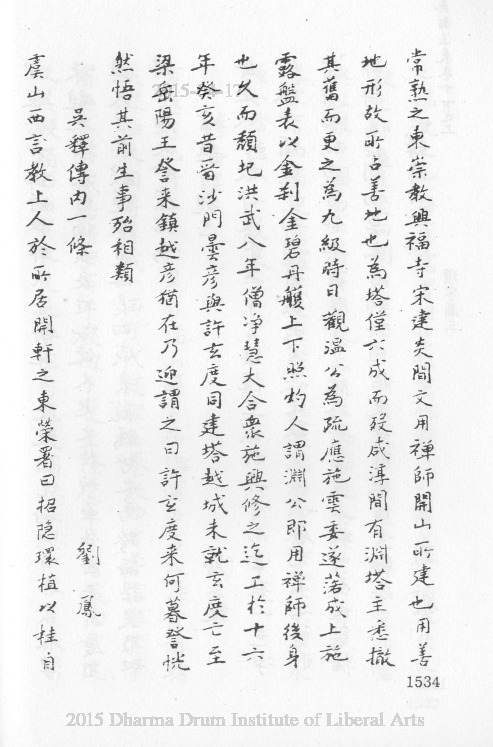 常熟之東崇教興福寺宋建炎間文用禪師開山所建也用善
地形故所占善地也為塔僅六成而歿咸淳間有淵塔主悉撤
其舊而更之為九級時日觀溫公為疏應施雲委遂落成上施
露盤表以金剎金碧丹雘上下照灼人謂淵公即用禪師後身
也久而頹圮洪武八年僧淨慧大合眾施興修之迄工於十六
年癸亥昔晉沙門曇彥與許玄度同建塔越城未就玄度亡至
梁岳陽王詧來鎮越彥猶在乃迎謂之曰許玄度來何暮詧恍
然悟其前生事殆相類
吳釋傳內一條
劉鳳
虞山西言教上人於所居開軒之東榮署曰招隱環植以桂自
1534
2015 Dharma Drum Institute of Liberal Arts